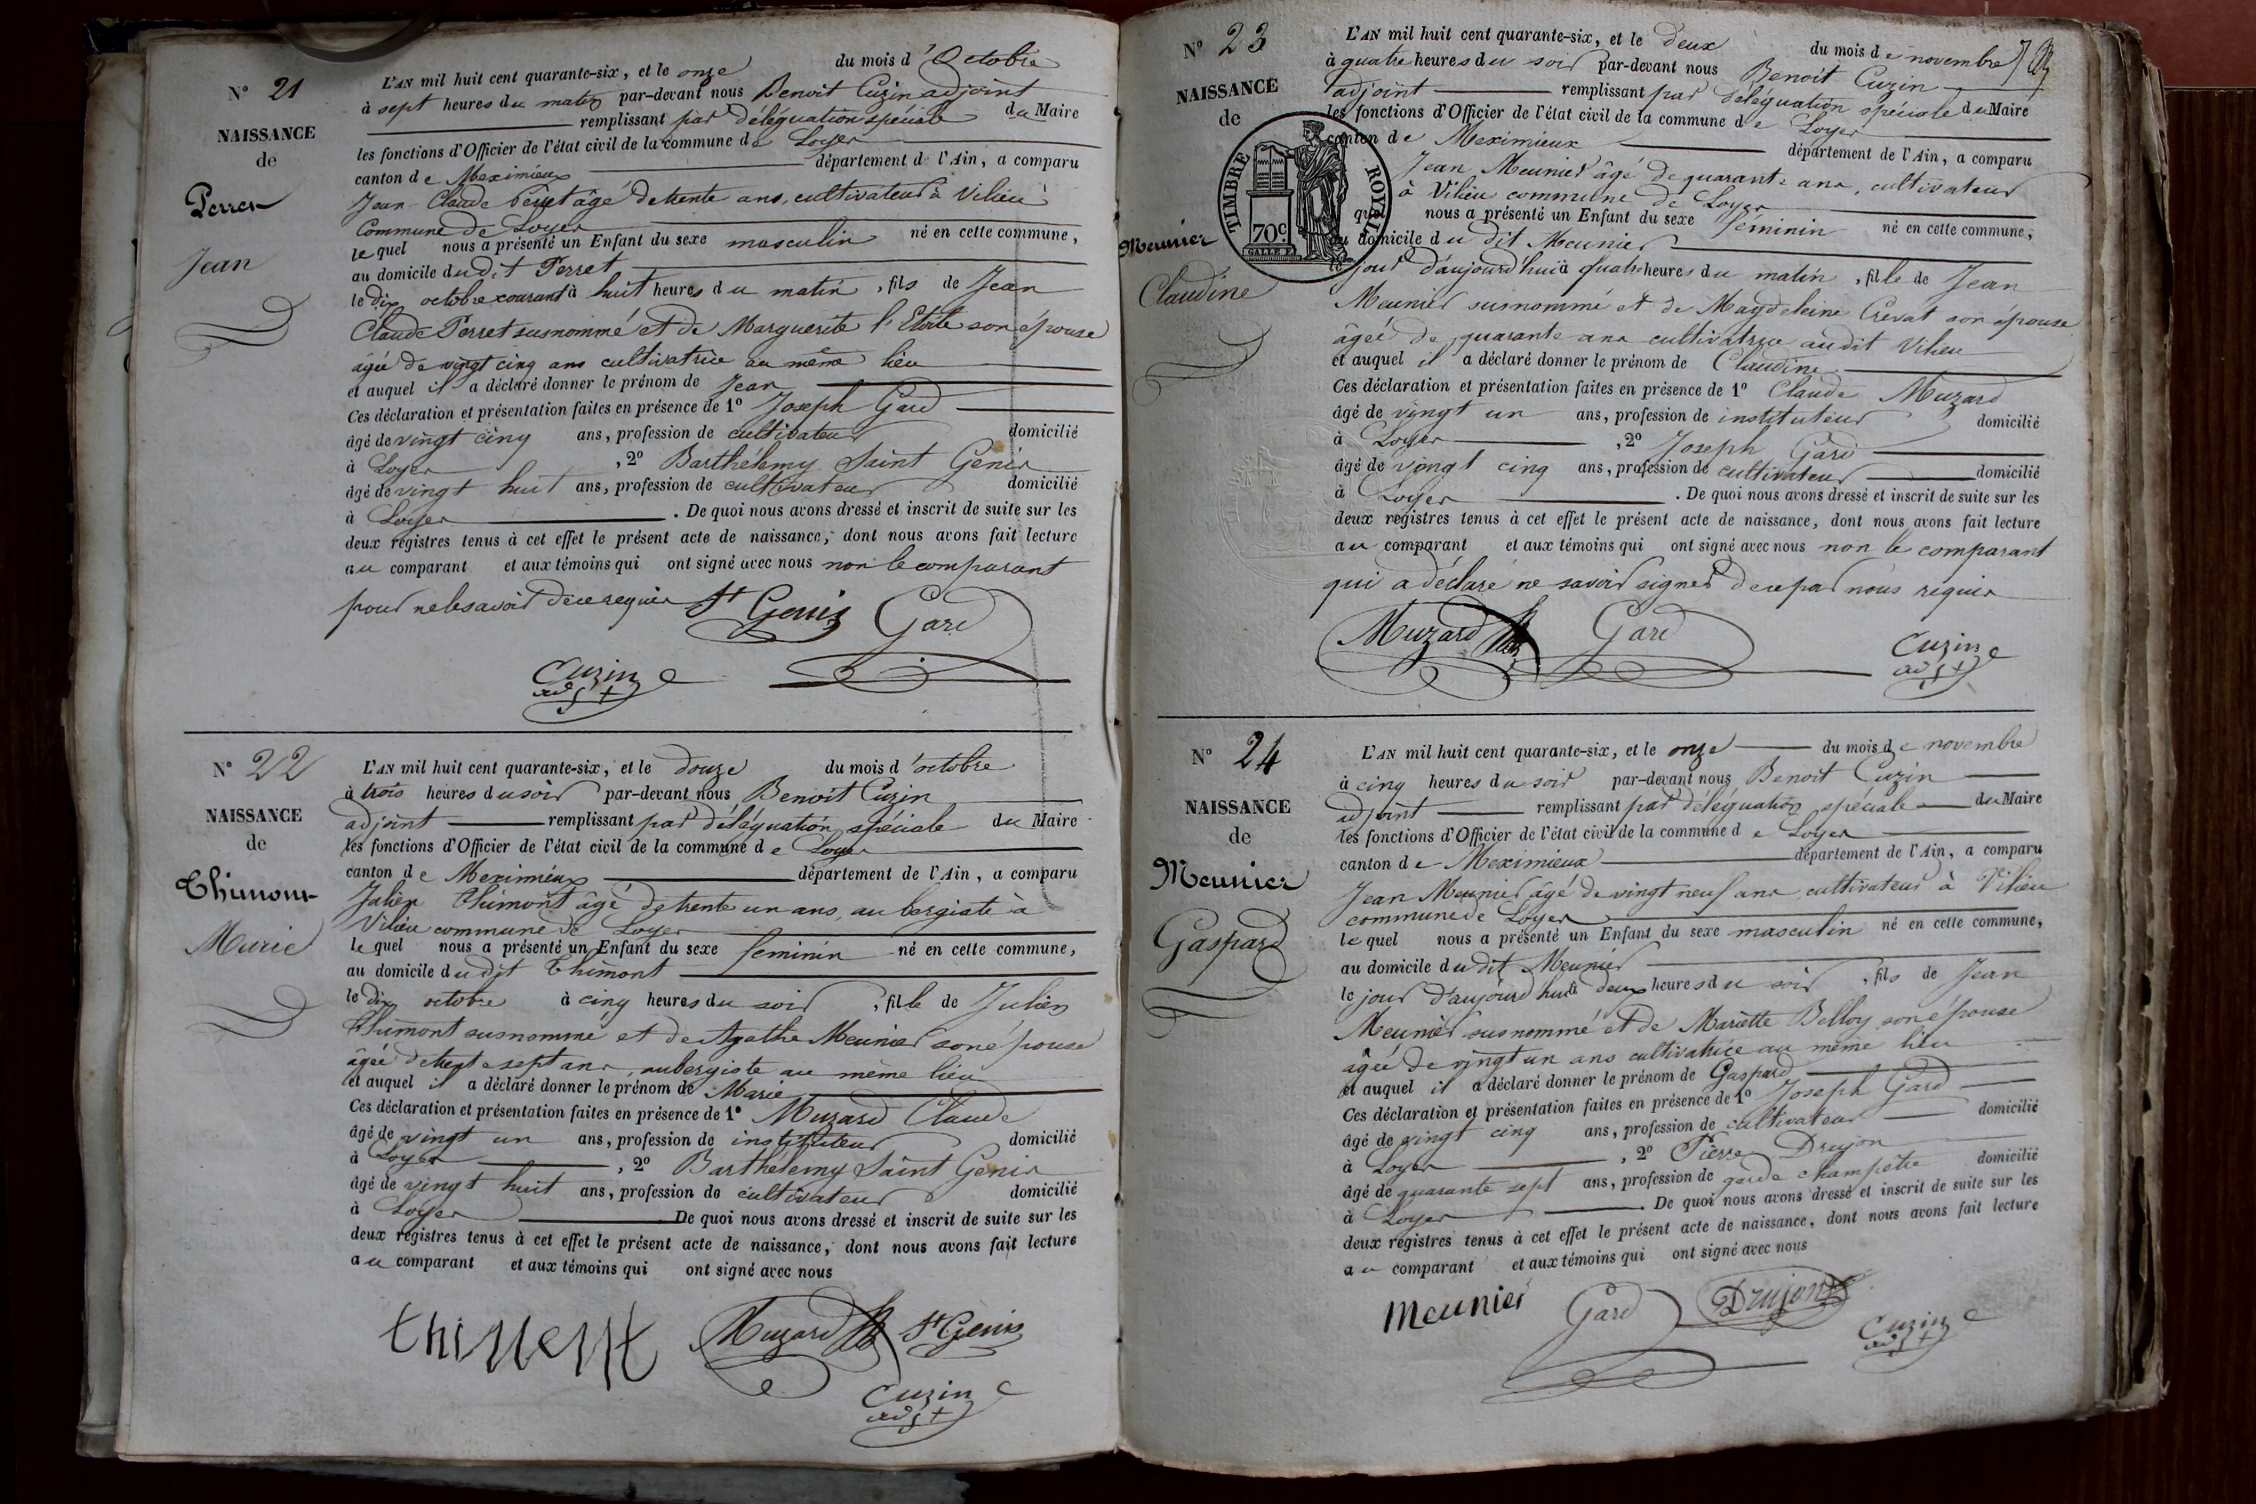 N° 21
NAISSANCE
de
Perret
Jean
L'AN mil huit cent quarante-six, et le onze du mois d'Octobre
à sept heures du matin par-devant nous Benoit Cuzin adjoint
remplissant par déléguation spéciale du Maire
les fonctions d'Officier de l'état civil de la commune de Loyes
canton de Meximieux département de l'Ain, a comparu
Jean Claude Perret âgé de trente ans, cultivateur à Vilieu
Commune de Loyes
lequel nous a présenté un Enfant du sexe masculin né en cette commune,
au domicile dudit Perret
le dix octobre courant à huit heures du matin, fils de Jean
Claude Perret susnommé et de Marguerite l'Etoile son épouse
âgée de vingt cinq ans cultivatrice au même lieu
et auquel il a déclaré donner le prénom de Jean
Ces déclaration et présentation faites en présence de 1° Joseph Gard
âgé de vingt cinq ans, profession de cultivateur domicilié
à Loyes, 2° Barthélemy Saint Genis
âgé de vingt huit ans, profession de cultivateur domicilié
à Loyes. De quoi nous avons dressé et inscrit de suite sur les
deux registres tenus à cet effet le présent acte de naissance, dont nous avons fait lecture
au comparant et aux témoins qui ont signé avec nous non le comparant
pour ne le savoir de ce requis St Genis Gard
Cuzin
adjt
N° 22
NAISSANCE
de
Thimont
Marie
L'AN mil huit cent quarante-six, et le douze du mois d'octobre
à trois heures du soir par-devant nous Benoit Cuzin
adjoint remplissant par déléguation spéciale du Maire
les fonctions d'Officier de l'état civil de la commune de Loyes
canton de Meximieux département de l'Ain, a comparu
Julien Thimont âgé de trente un ans, aubergiste à
Vilieu commune de Loyes
lequel nous a présenté un Enfant du sexe feminin né en cette commune,
au domicile dudit Thimont
le dix octobre à cinq heures du soir, fille de Julien
Thimont susnommé et de Agathe Meunier son épouse
âgée de trente sept ans, aubergiste au même lieu
et auquel il a déclaré donner le prénom de Marie
Ces déclaration et présentation faites en présence de 1° Muzard Claude
âgé de vingt un ans, profession de instituteur domicilié
à Loyes, 2° Barthélemy Saint Genis
âgé de vingt huit ans, profession de cultivateur domicilié
à Loyes De quoi nous avons dressé et inscrit de suite sur les
deux registres tenus à cet effet le présent acte de naissance, dont nous avons fait lecture
au comparant et aux témoins qui ont signé avec nous
Muzard St Genis
Cuzin
adjt
N° 23
NAISSANCE
de
TIMBRE ROYAL
70c.
Meunier
Claudine
L'AN mil huit cent quarante-six, et le deux du mois de novembre
à quatre heures du soir par-devant nous Benoit Cuzin
adjoint remplissant par déléguation spéciale du Maire
les fonctions d'Officier de l'état civil de la commune de Loyes
canton de Meximieux département de l'Ain, a comparu
Jean Meunier âgé de quarante ans, cultivateur
à Vilieu commune de Loyes
qui nous a présenté un Enfant du sexe féminin né en cette commune,
au domicile du dit Meunier
le jour d'aujourd'hui à quatre heures du matin, fille de Jean
Meunier susnommé et de Magdeleine Crevat son épouse
âgée de quarante ans cultivatrice audit Vilieu
et auquel il a déclaré donner le prénom de Claudine
Ces déclaration et présentation faites en présence de 1° Claude Muzard
âgé de vingt un ans, profession de instituteur domicilié
à Loyes, 2° Joseph Gard
âgé de vingt cinq ans, profession de cultivateur domicilié
à Loyes. De quoi nous avons dressé et inscrit de suite sur les
deux registres tenus à cet effet le présent acte de naissance, dont nous avons fait lecture
au comparant et aux témoins qui ont signé avec nous non le comparant
qui a déclaré ne savoir signer de ce par nous requis
Muzard Gard Cuzin
adjt
N° 24
NAISSANCE
de
Meunier
Gaspard
L'AN mil huit cent quarante-six, et le onze du mois de novembre
à cinq heures du soir par-devant nous Benoit Cuzin
adjoint remplissant par déléguation spéciale du Maire
les fonctions d'Officier de l'état civil de la commune de Loyes
canton de Meximieux département de l'Ain, a comparu
Jean Meunier âgé de vingt neuf ans, cultivateur à Vilieu
commune de Loyes
lequel nous a présenté un Enfant du sexe masculin né en cette commune,
au domicile dudit Meunier
le jour d'aujourd'hui à deux heures du soir, fils de Jean
Meunier susnommé et de Mariette Belloy son épouse
âgée de vingt un ans cultivatrice au même lieu
et auquel il a déclaré donner le prénom de Gaspard
Ces déclaration et présentation faites en présence de 1° Joseph Gard
âgé de vingt cinq ans, profession de cultivateur domicilié
à Loyes, 2° Pierre Drujon
âgé de quarante sept ans, profession de garde champêtre domicilié
à Loyes. De quoi nous avons dressé et inscrit de suite sur les
deux registres tenus à cet effet le présent acte de naissance, dont nous avons fait lecture
au comparant et aux témoins qui ont signé avec nous
Meunier Gard Drujon
Cuzin
adjt